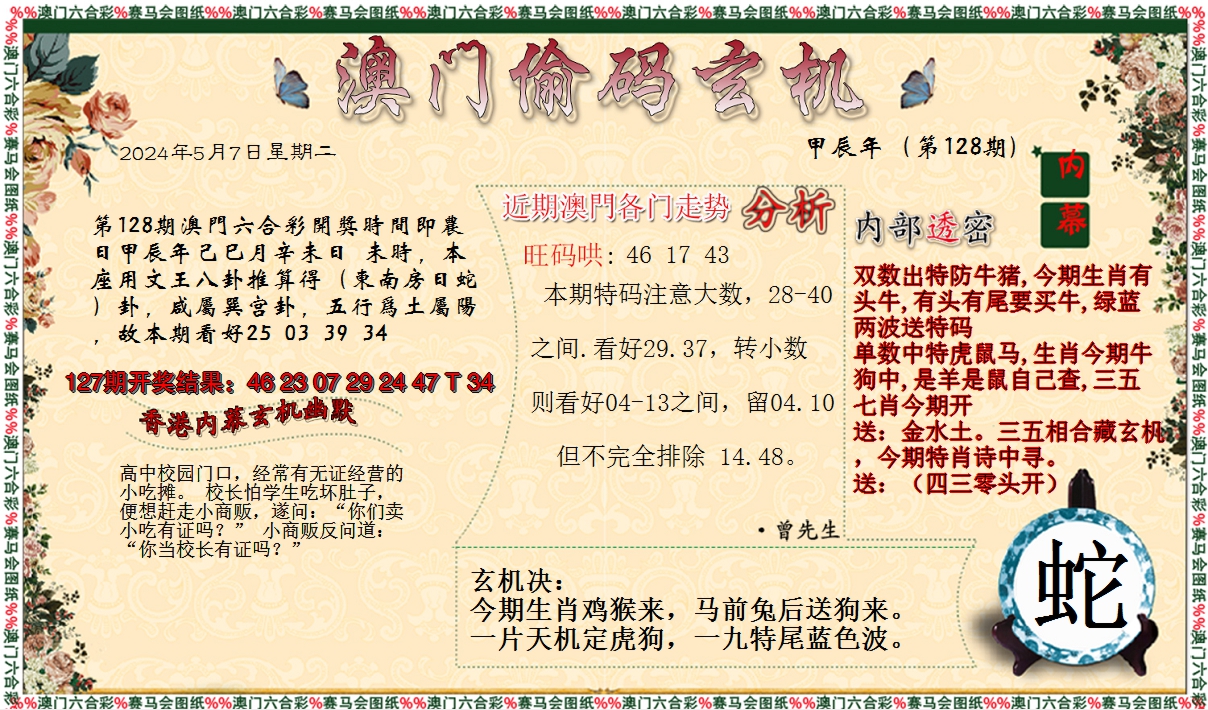 %%澳门六合彩%赛马会图纸%%澳门六合彩%赛马会图纸%%澳门六合彩%赛马会图纸%%澳门六合彩%赛马会图纸%%澳门六合彩%赛马会图纸%%澳门六合彩%赛马会图纸%%
澳门偷码玄机
2024年5月7日星期二
甲辰年 （第128期）
内
幕
第128期澳門六合彩開獎時間即農
日甲辰年己巳月辛未日 未時，本
座用文王八卦推算得（東南房日蛇
）卦，咸屬巽宫卦，五行爲土屬陽
，故本期看好25 03 39 34
127期开奖结果：46 23 07 29 24 47 T 34
香港内幕玄机幽默
高中校园门口，经常有无证经营的
小吃摊。 校长怕学生吃坏肚子，
便想赶走小商贩，遂问：“你们卖
小吃有证吗？” 小商贩反问道：
“你当校长有证吗？”
近期澳門各门走势 分析
旺码哄: 46 17 43
本期特码注意大数，28-40
之间.看好29.37，转小数
则看好04-13之间，留04.10
但不完全排除 14.48。
·曾先生
内部透密
双数出特防牛猪,今期生肖有
头牛,有头有尾要买牛,绿蓝
两波送特码
单数中特虎鼠马,生肖今期牛
狗中,是羊是鼠自己查,三五
七肖今期开
送：金水土。三五相合藏玄机
，今期特肖诗中寻。
送：（四三零头开）
玄机决：
今期生肖鸡猴来，马前兔后送狗来。
一片天机定虎狗，一九特尾蓝色波。
蛇
%%澳门六合彩%赛马会图纸%%澳门六合彩%赛马会图纸%%澳门六合彩%赛马会图纸%%澳门六合彩%赛马会图纸%%澳门六合彩%赛马会图纸%%澳门六合彩%赛马会图纸%%